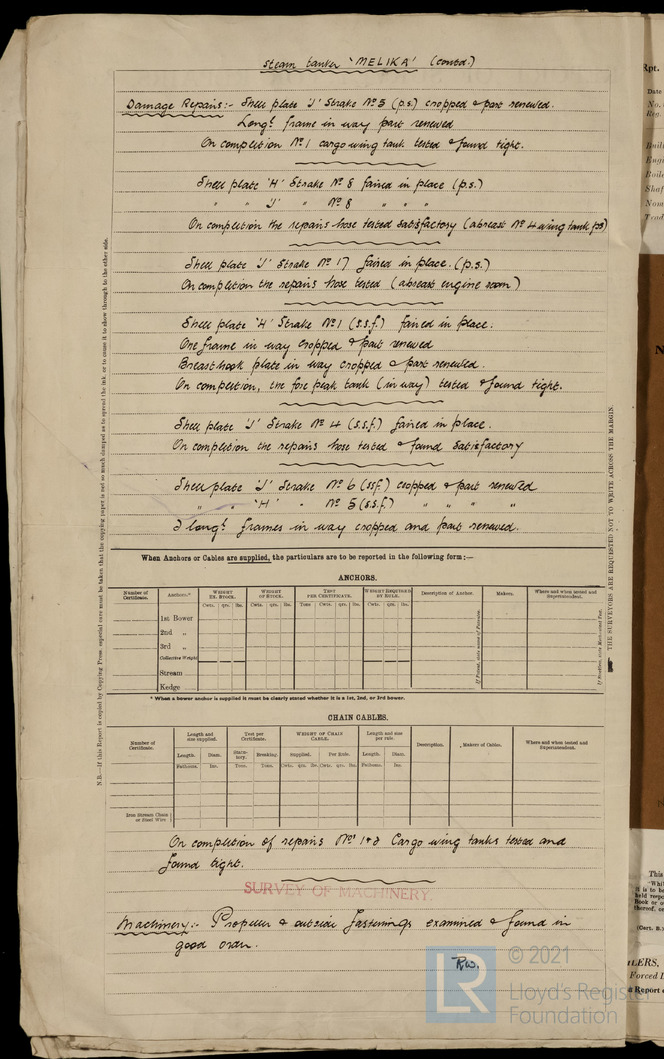 Steam tanker 'MELIKA' (contd.)
Damage Repairs:- Shell plate 'J' Strake No 5 (p.s.) cropped & part renewed.
Longl frame in way part renewed
On completion No 1 cargo wing tank tested & found tight.
Shell plate 'H' Strake No 8 faired in place (p.s.)
" " 'J' " No 8 " " "
On completion the repairs hose tested satisfactory (abreast No 4 wing tank ps)
Shell plate 'J' Strake No 17 faired in place. (p.s.)
On completion the repairs hose tested (abreast engine room)
Shell plate 'H' Strake No 1 (s.s.f.) faired in place.
One frame in way cropped & part renewed
Breasthook plate in way cropped & part renewed.
On completion, the fore peak tank (in way) tested & found tight.
Shell plate 'J' Strake No 4 (s.s.f.) faired in place.
On completion the repairs hose tested & found satisfactory
Shell plate 'J' Strake No 6 (ssf.) cropped & part renewed
" " 'H' " No 5 (s.s.f.) " " " "
longl frames in way cropped and part renewed.
When Anchors or Cables are supplied, the particulars are to be reported in the following form :—
ANCHORS.
Number of Certificate. Anchors.* WEIGHT EX. STOCK. WEIGHT OF STOCK. TEST PER CERTIFICATE. WEIGHT REQUIRED BY RULE. Description of Anchor. Makers. Where and when tested and Superintendent.
Cwts. qrs. lbs. Cwts. qrs. lbs. Tons Cwts. qrs. lbs. Cwts. qrs. lbs.
1st Bower
2nd „
3rd „
Collective Weight
Stream
Kedge
* When a bower anchor is supplied it must be clearly stated whether it is a 1st, 2nd, or 3rd bower.
CHAIN CABLES.
Number of Certificate. Length and size supplied. Test per Certificate. WEIGHT OF CHAIN CABLE. Length and size per rule. Description. Makers of Cables. Where and when tested and Superintendent.
Length. Diam. Statutory. Breaking. Supplied. Per Rule. Length. Diam.
Fathoms. Ins. Tons. Tons. Cwts. qrs. lbs. Cwts. qrs. lbs. Fathoms. Ins.
Iron Stream Chain or Steel Wire
On completion of repairs Cargo wing tanks tested and
found tight.
SURVEY OF MACHINERY.
Machinery:- Propeller & outside fastenings examined & found in
good order.
RW.
N.B.—If this Report is copied by Copying Press, special care must be taken that the copying paper is not so much damped as to spread the ink, or to cause it to show through to the other side.
THE SURVEYORS ARE REQUESTED NOT TO WRITE ACROSS THE MARGIN.
LR
© 2021
Lloyd's Register
Foundation
Rpt.
Date
No.
Reg.